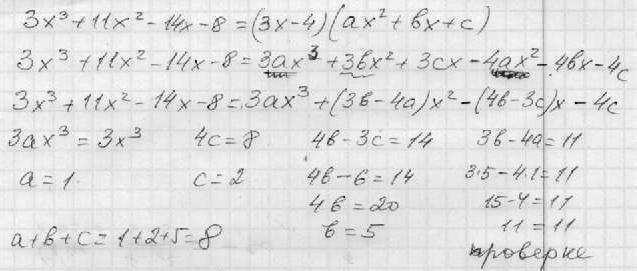 3x³+11x²-14x-8=(3x-4)(ax²+bx+c)
3x³+11x²-14x-8=3ax³+3bx²+3cx-4ax²-4bx-4c
3x³+11x²-14x-8=3ax³+(3b-4a)x²-(4b-3c)x-4c
3ax³=3x³ 4c=8 4b-3c=14 3b-4a=11
a=1. c=2 4b-6=14 3·5-4·1=11
4b=20 15-4=11
a+b+c=1+2+5=8 b=5 11=11
проверке